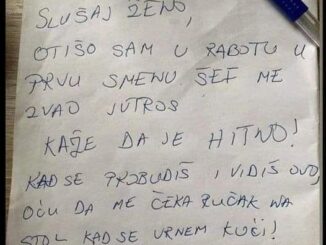 SLUŠAJ ŽENO,
OTIŠO SAM U RABOTU U
PRVU SMENU ŠEF ME
ZVAO JUTROS
KAŽE DA JE HITNO!
KAD SE PROBUDIŠ I VIDIŠ OVO,
OĆU DA ME ČEKA RUČAK NA
STOL KAD SE VRNEM KUČI!